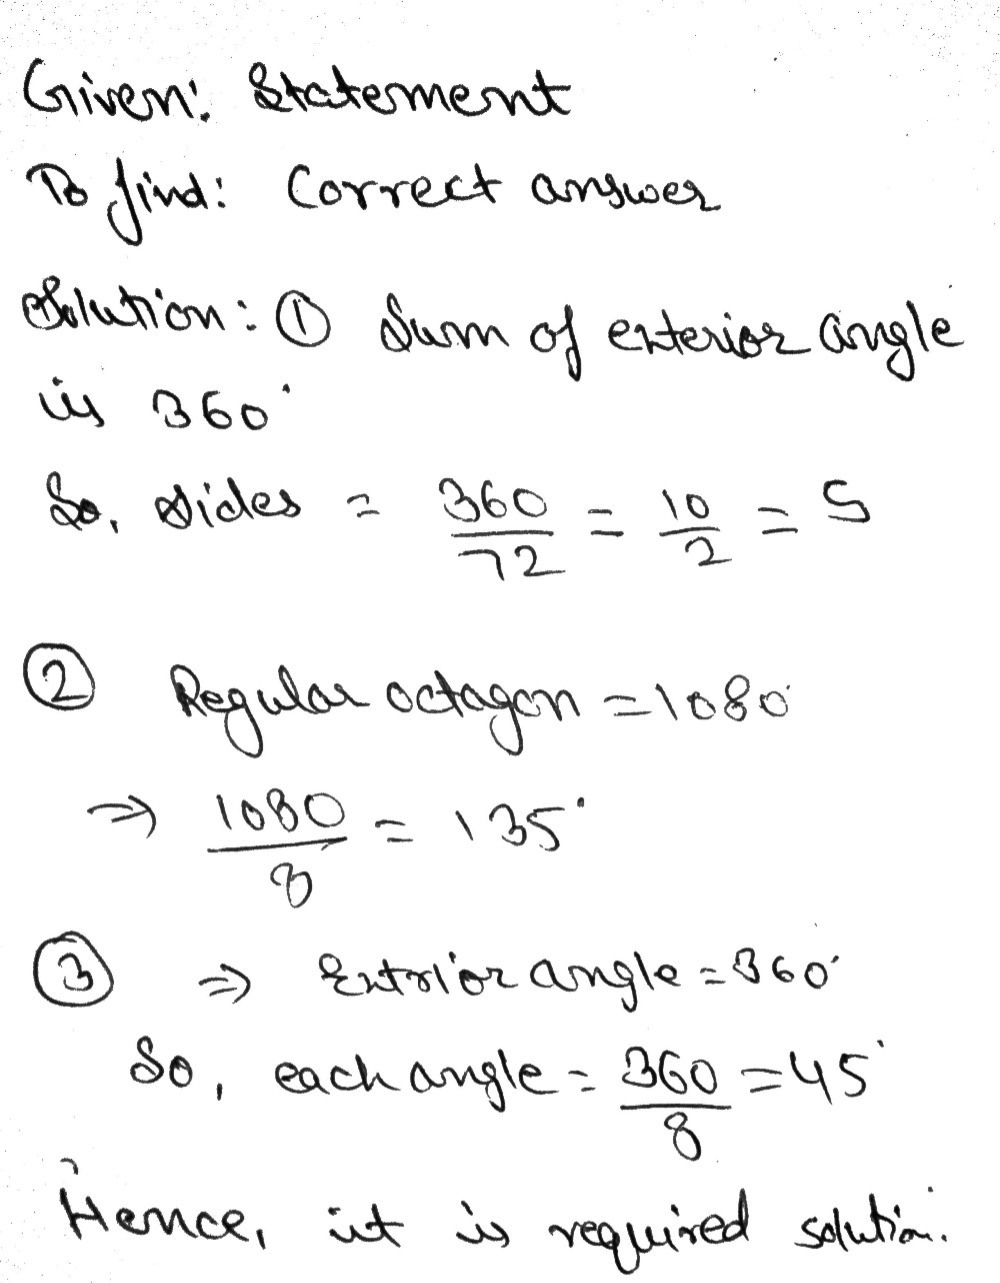 Given: Statement
To find: Correct answer
Solution: ① Sum of exterior angle
is 360°
So, sides = 360/72 = 10/2 = 5
② Regular octagon = 1080°
⇒ 1080/8 = 135°
③ ⇒ Exterior angle = 360°
So, each angle = 360/8 = 45°
Hence, it is required solution.